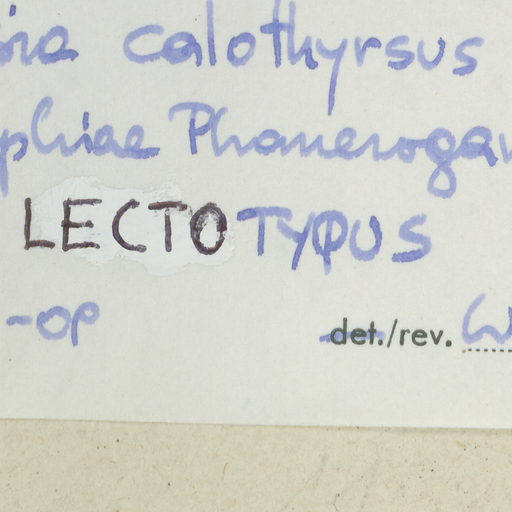 calothyrsus
phiae Phanerogam
LECTOTYPUS
-OP det./rev. W